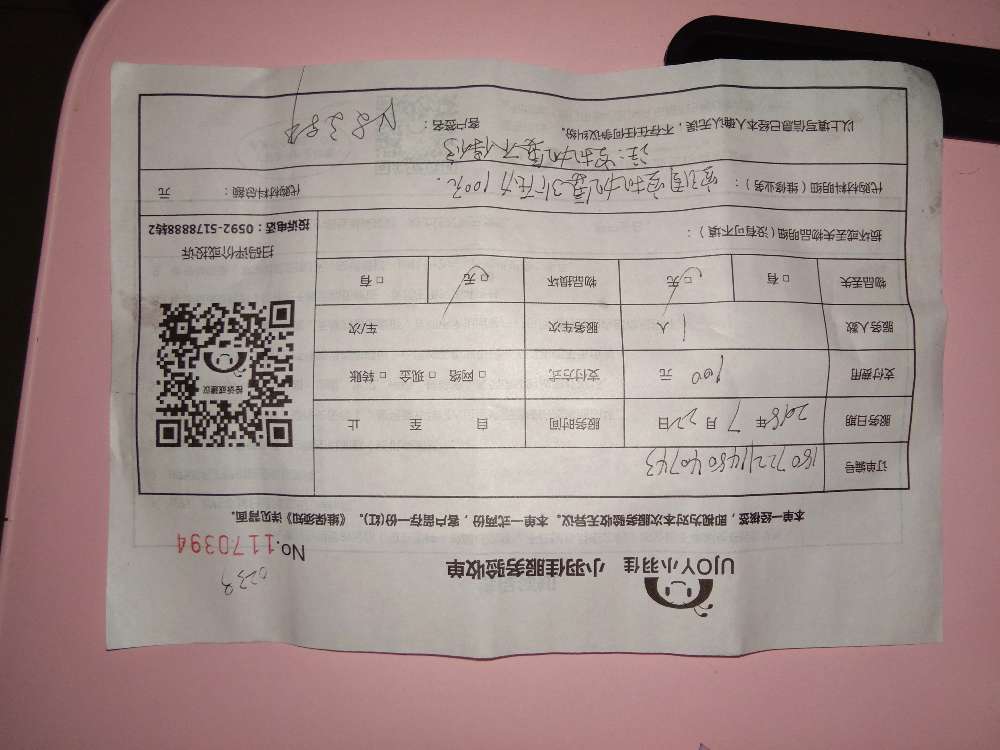 UJOY小羽佳 小羽佳服务验收单
No.1170394
本单一经核签，即视为对本次服务验收无异议。本单一式两份，客户留存一份(红)。《维保须知》详见背面。
订单编号
服务日期 2018年 7月 22日 服务时间 自 至 止
支付费用 100 元 支付方式 □ 网络 □ 现金 □ 转账
服务人数 1 人 服务车次 车/次
物品丢失 □ 有 □ 无 物品损坏 □ 无 □ 有
损坏或丢失物品明细（没有可不填）：
投诉或建议
扫码评价或投诉
投诉电话：0592-5178888转2
代购材料明细（维修业务）： 空机 100元. 代购材料总额： 元
以上填写信息已经本人确认无误，不存在任何争议纠纷。 客户签名：